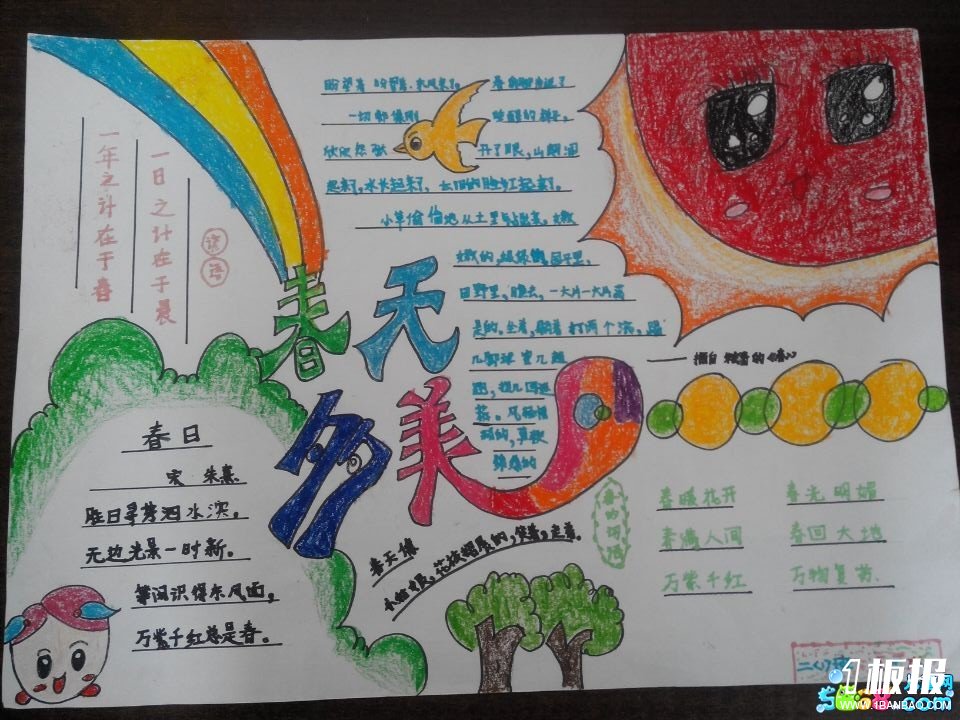 一年之计在于春
一日之计在于晨
谚语
春天多美
盼望着 盼望着,东风来了。春天的脚步近了
一切都像刚 睡醒的样子,
欣欣然张 开了眼,山朗润
起来了,水长起来了,太阳的脸红起来了。
小草偷偷地从土里钻出来,嫩
嫩的,绿绿的,园子里,
田野里,瞧去,一大片一大片满
是的。坐着,躺着 打两个滚,踢
几脚球 赛几趟
跑,捉几回迷
藏。风轻悄
悄的,草软
绵绵的
春日
宋 朱熹
胜日寻芳泗水滨,
无边光景一时新。
等闲识得东风面,
万紫千红总是春。
春天像
小姑娘,花枝招展的,笑着,走着。
春的词语
春暖花开 春光明媚
春满人间 春回大地
万紫千红 万物复苏
二(
1板报
WWW.1BANBAO.COM